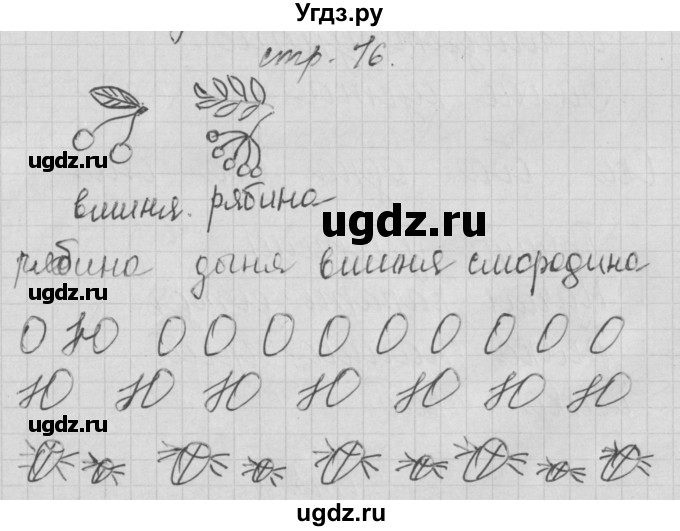 Угдз.ру
стр. 16.
ugdz.ru ugdz.ru
вишня. рябина
ugdz.ru
рябина дыня вишня смородина
ugdz.ru
О Ю О О О О О О О О О
Ю Ю Ю Ю Ю Ю Ю
ugdz.ru
ugdz.ru